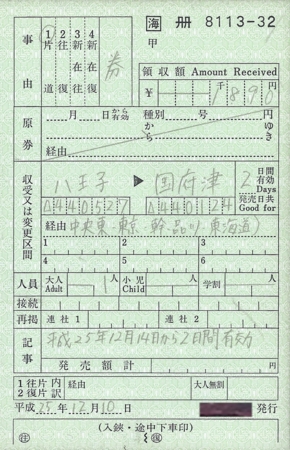 海 冊 8113-32
甲
事由
1片道 2往復 3新在往 4新在往復
券
領収額 Amount Received
¥ 1890 円
千
原券
月 日から有効 種別 号 円
から ゆき
経由
収受又は変更区間
八王子 ▶ 国府津 2日間有効 Days
440527 440124 発売日共 Good for
経由 中央東 東京 幹 品川 東海道
1 2 3
4 5 6
人員 大人 Adult 人 小児 Child 人 学割 人
接続
再掲 連社1 連社2
記事
平成25年12月14日から2日間有効
発売額計
1往片 2復片 内訳 経由 大人無割
平成 25年 12月 10日 発行
(入鋏・途中下車印)